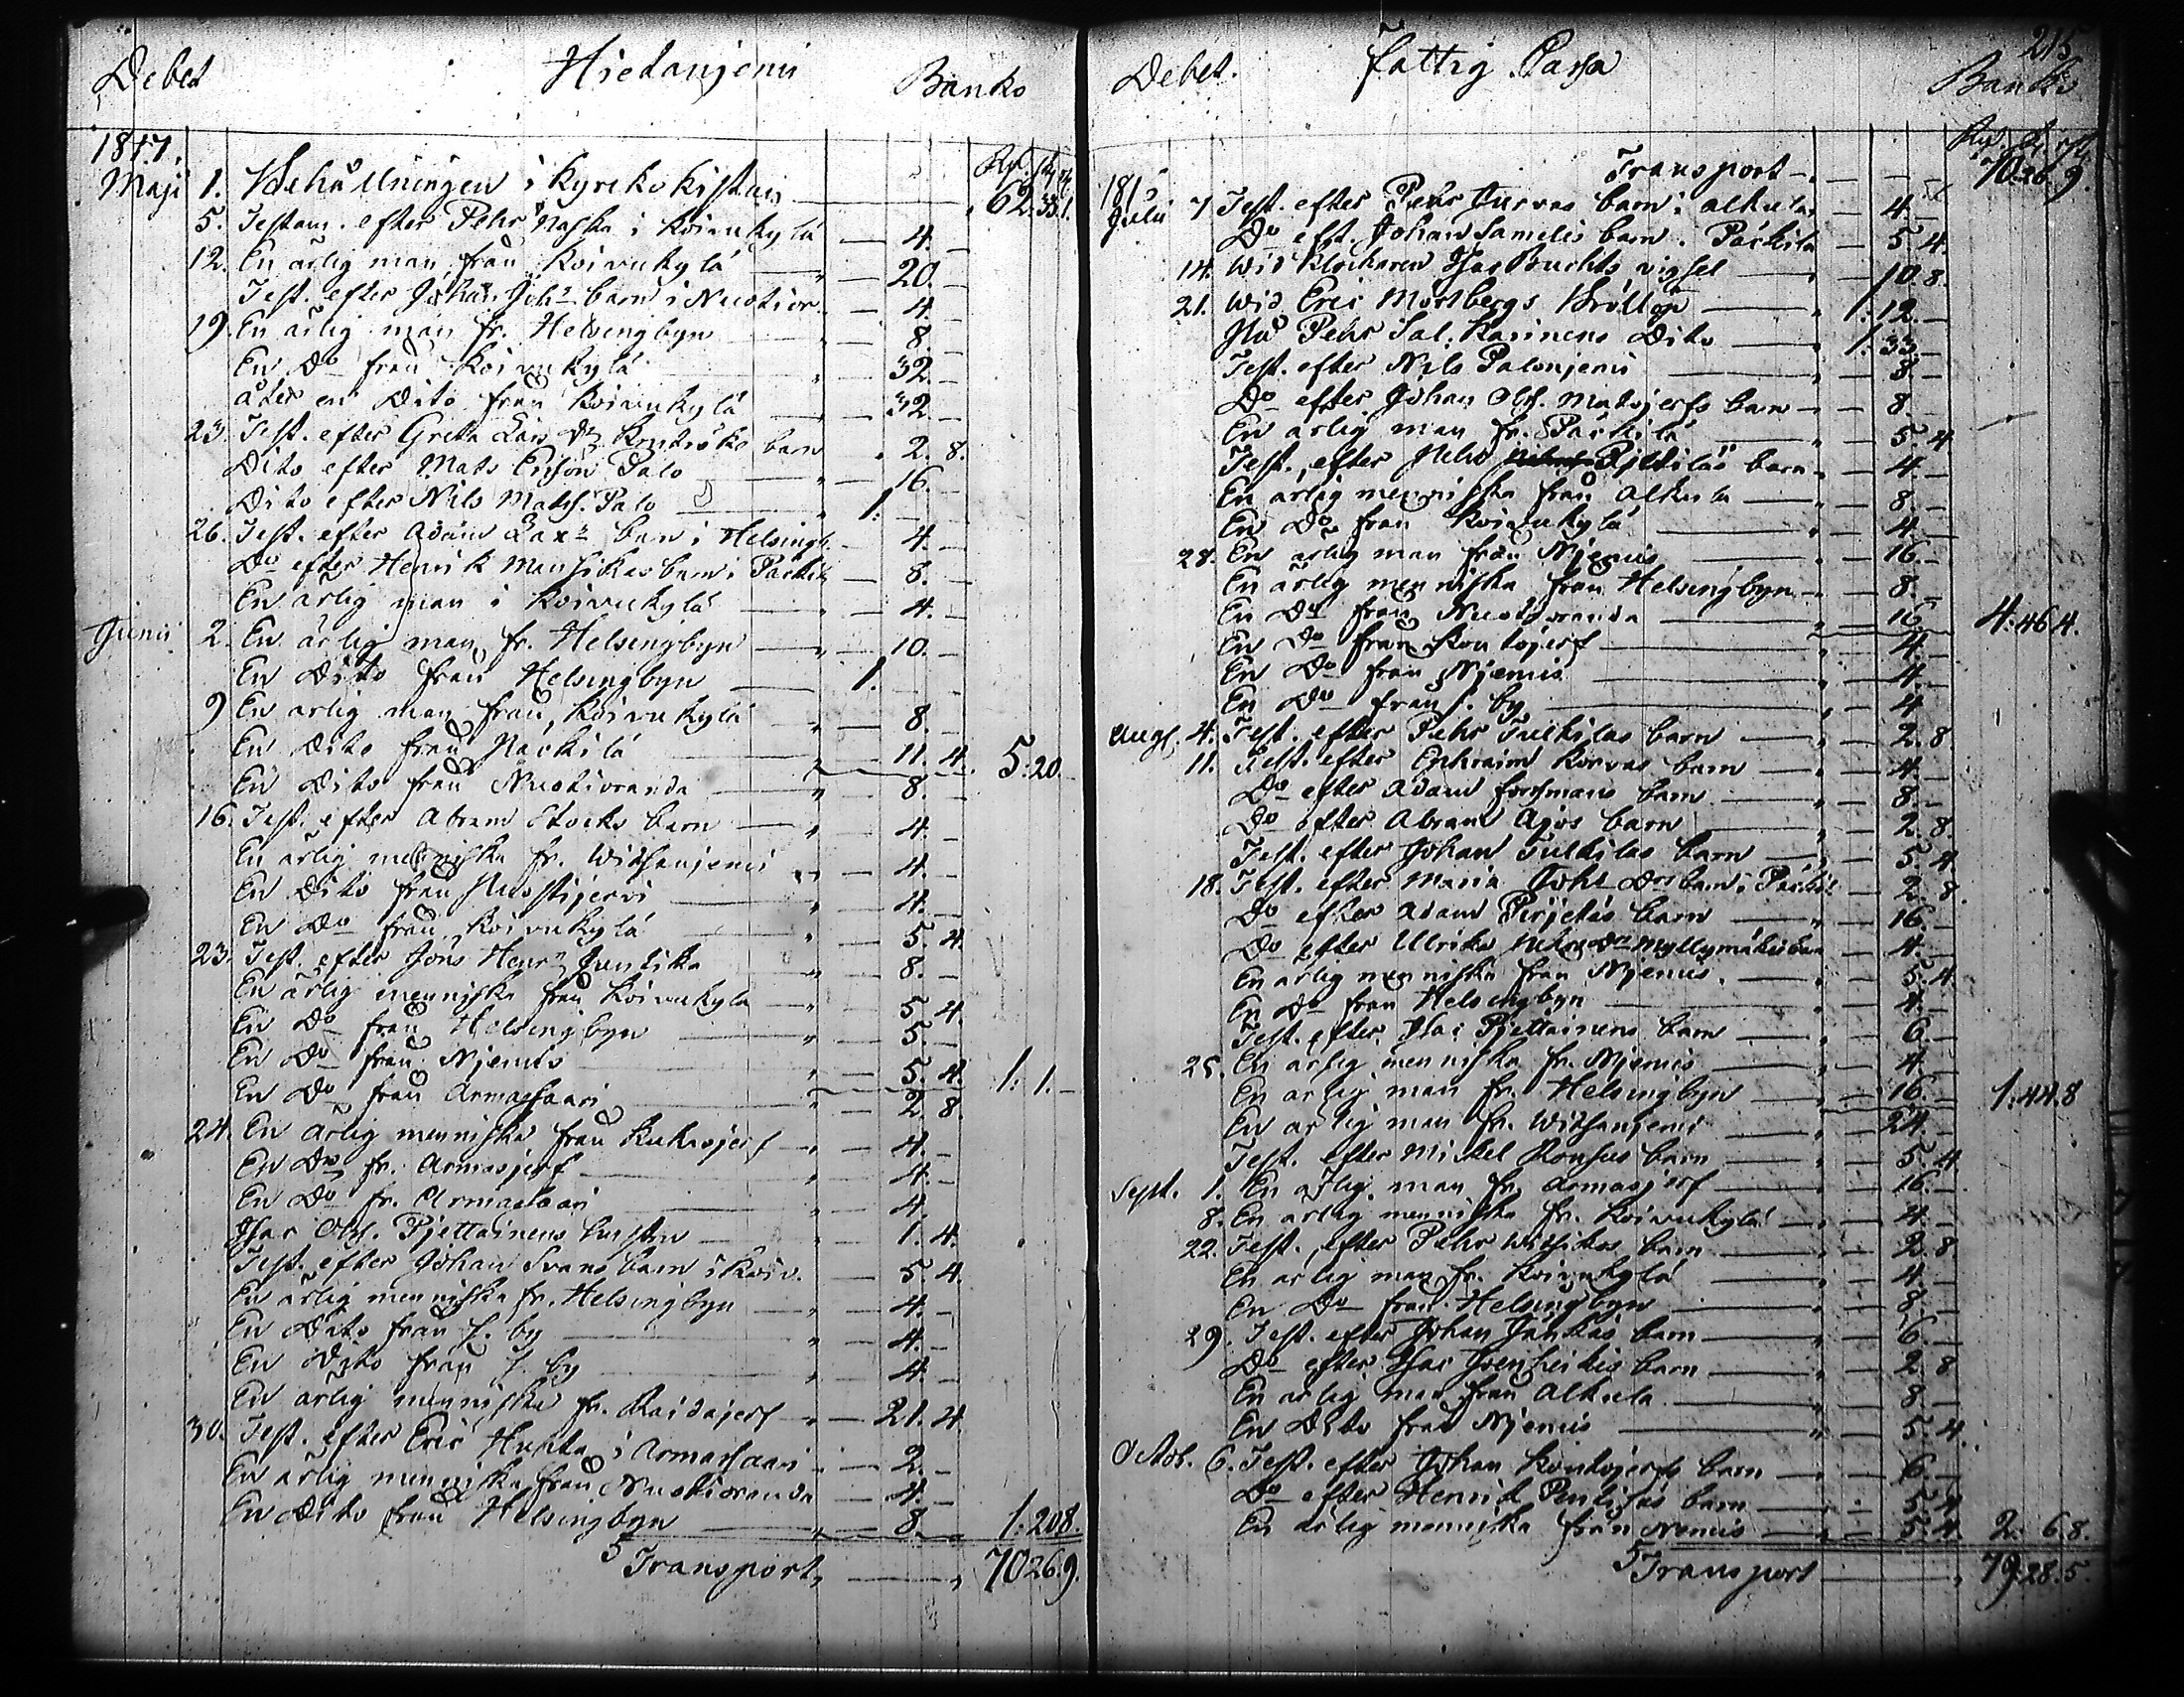 Debet Hiedanjemi Banko
1817. Rd. sk. r.
Maji 1. Behållningen i kyrko kistan 62. 33. 1.
5. Testam. efter Pehr Naska i Koivukylä 4. -
12. En ärlig man från Koivukylä 20. -
Test. efter Johan Johns barn i Nuotior. 4. -
19. En ärlig man fr. Helsingbyn 8. -
En Do från Koivukylä 32. -
åter en Dito från Koivukylä 32. -
23. Test. efter Greta Lars Dr barn 2. 8.
Dito efter Mats Ersson Palo 16. -
Dito efter Nils Mats. Palo 1. - -
26. Test. efter Adam Laxs barn i Helsingb. 4. -
Do efter Henrik Mansikas barn i Päckilä 8. -
En ärlig man i Koivukylä 4. -
Junii 2. En ärlig man fr. Helsingbyn 10. -
En Dito från Helsingbyn 1. - -
9 En ärlig man från Koivukylä 8. -
En Dito från Päckilä 11. 4. 5. 20.
En Dito från Nuotioranda 8. -
16. Test. efter Abram Stocks barn 4. -
En ärlig menniska fr. Witsanjemi 4. -
En Dito från 4. -
En Do från Koivukylä 5. 4.
23. Test. efter Jöns Henrs Juntika 8. -
En ärlig menniska från Koivukylä 5. 4.
En Do från Helsingbyn 5. -
En Do från Njemis 5. 4. 1: 1. -
En Do från Armassaari 2. 8.
24. En ärlig menniska från Kuknsjerf 4. -
En Do fr. Armasjerf 4. -
En Do fr. Armassaari 4. -
Isac Ols. Pjettäinens hustru 1. 4.
Test. efter Johan Svans barn i Koiv. 5. 4.
En ärlig menniska fr. Helsingbyn 4. -
En Dito från s. by 4. -
En Dito från s. by 4. -
En ärlig menniska fr. Raidajerf 21. 4.
30. Test. efter Eric Huhta i Armassaari 2. -
En ärlig menniska från Nuotioranda 4. -
En Dito från Helsingbyn 8. - 1: 20 8.
Transport 70 26. 9.
215
Debet. Fattig Cassa Banko
Transport 70. 26. 9.
Julii 7 Test. efter Pehr Turvas barn i Alkula 4. -
Do eft. Johan Samelis barn i Päckilä 5. 4.
14. Wid Klockaren Isac vigsel 10. 8.
21. Wid Eric Mörtbergs Bröllop 1: 12. -
På Pehr Sal. Karinens Dito 1. 33. -
Test. efter Nils Palonjemi 8. -
Do efter Johan Ols. Matojerfs barn 8. -
En ärlig man fr. Päckilä 5. 4
Test. efter Pehr barn 4. -
En ärlig menniska från Alkula 8. -
En Do från Koivukylä 4. -
28. En ärlig man från Njemis 16. -
En ärlig menniska från Helsingbyn 8. -
En Do från Nuotioranda 16 4: 46 4.
En Do från Kontojerf 4. -
En Do från Njemis 4. -
En Do från s. by 4
Augs. 4. Test. efter Pehr Tulkilas barn 2. 8.
11. Test. efter Ephraim Korvas barn 4. -
Do efter Adam Forssmans barn 8. -
Do efter Abram Ajos barn 2. 8.
Test. efter Johan Tulkilas barn 5. 4.
18. Test. efter Maria Johs Drs barn i Päckil. 2. 8.
Do efter Adam Pirjetäs barn 16. -
Do efter Ulrika Pehrs Dr Myllymäkis barn 4. -
En ärlig menniska från Njemis. 5. 4.
En Do från Helsingbyn 4. -
Test. efter Isac Pjettäinens barn 6. -
25. En ärlig menniska fr. Njemis 4. -
En ärlig man fr. Helsingbyn 16. - 1: 44. 8
En ärlig man fr. Witsanjemi 24. -
Test. efter Mickel Rousus barn 5. 4
Sept. 1. En ärlig man fr. Armasjerf 16. -
8. En ärlig menniska fr. Koivukylä 4. -
22. Test. efter Pehr Witsikas barn 2. 8
En ärlig man fr. Koivukylä 4. -
En Do från Helsingbyn 8. -
29. Test. efter Johan Jänkäs barn 6. -
Do efter Isac barn 2. 8
En ärlig man från Alkula 8. -
En Dito från Njemis 5. 4.
Octob. 6. Test. efter Johan Kontojerfs barn 6. -
Do efter Henrik barn 5. 4
En ärlig menniska från Nemis 5. 4. 2. 6. 8.
Transport 79. 28. 5.